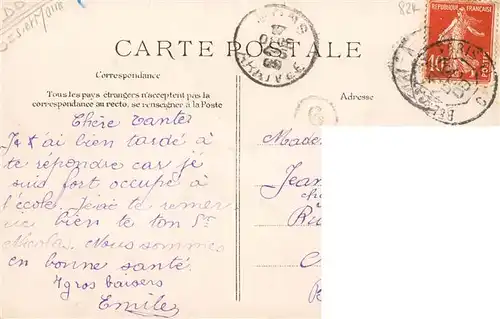 CARTE POSTALE
Correspondance
Tous les pays étrangers n'acceptent pas la
correspondance au recto, se renseigner à la Poste
Adresse
REPUBLIQUE FRANÇAISE
10
POSTES
ARRIVEE
Chère Tante
Je t'ai bien tardé à
te répondre car je
suis fort occupé à
l'école. Je te remer
cie bien de ton St
Nicolas. Nous sommes
en bonne santé.
gros baisers
Emile
Made
Jean